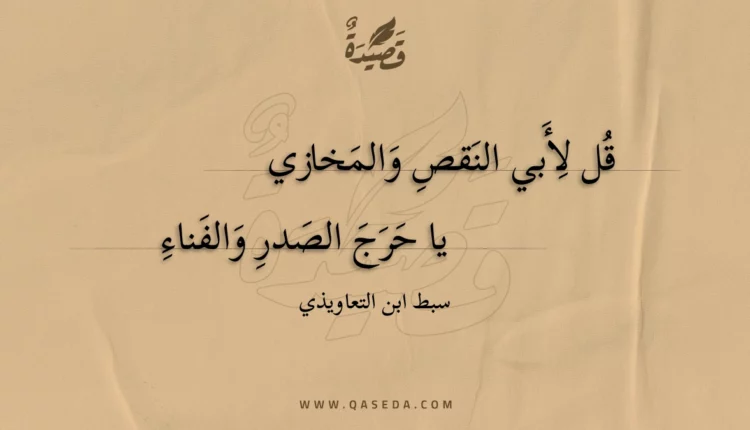 قَصِيْدَةٌ
قُل لِأَبي النَقصِ وَالمَخازي
يا حَرَجَ الصَدرِ وَالفَناءِ
سبط ابن التعاويذي
WWW.QASEDA.COM